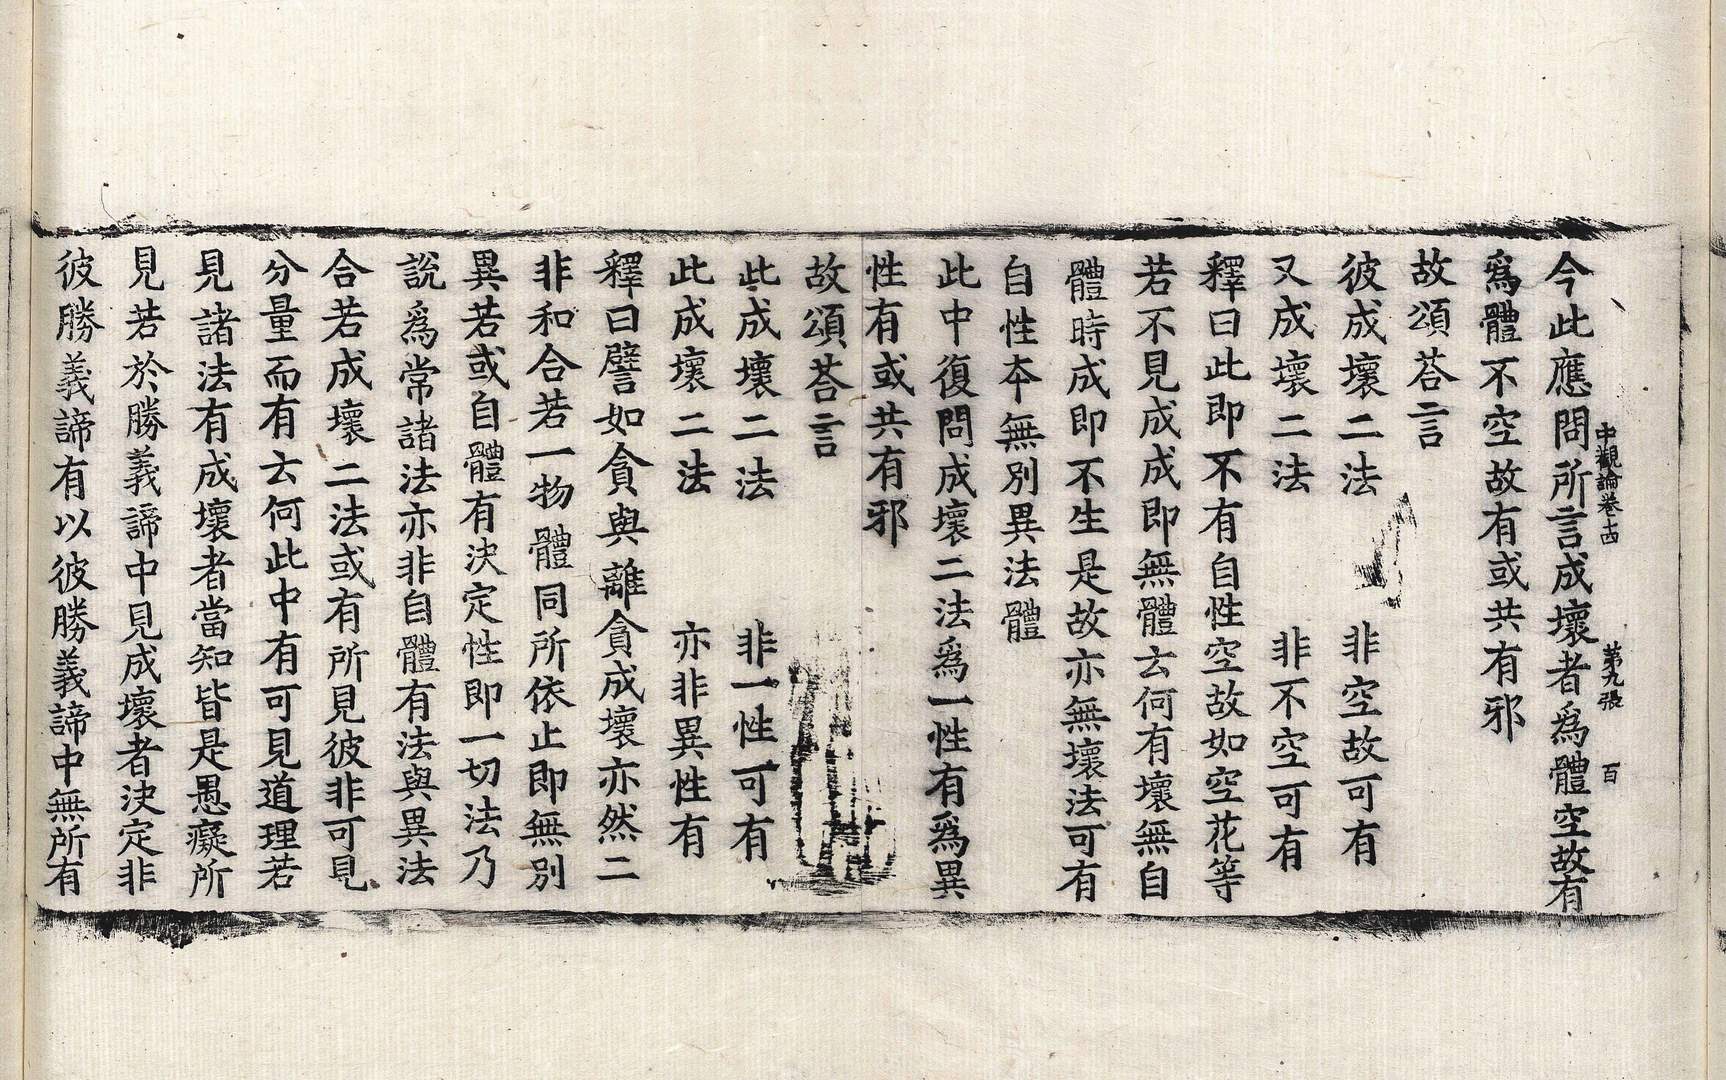 中觀論卷十四 第九張 百
今此應問所言成壞者爲體空故有
爲體不空故有或共有邪
故頌荅言
彼成壞二法 非空故可有
又成壞二法 非不空可有
釋曰此即不有自性空故如空花等
若不見成成即無體云何有壞無自
體時成即不生是故亦無壞法可有
自性本無別異法體
此中復問成壞二法爲一性有爲異
性有或共有邪
故頌荅言
此成壞二法 非一性可有
此成壞二法 亦非異性有
釋曰譬如貪與離貪成壞亦然二
非和合若一物體同所依止即無別
異若或自體有決定性即一切法乃
說爲常諸法亦非自體有法與異法
合若成壞二法或有所見彼非可見
分量而有云何此中有可見道理若
見諸法有成壞者當知皆是愚癡所
見若於勝義諦中見成壞者決定非
彼勝義諦有以彼勝義諦中無所有